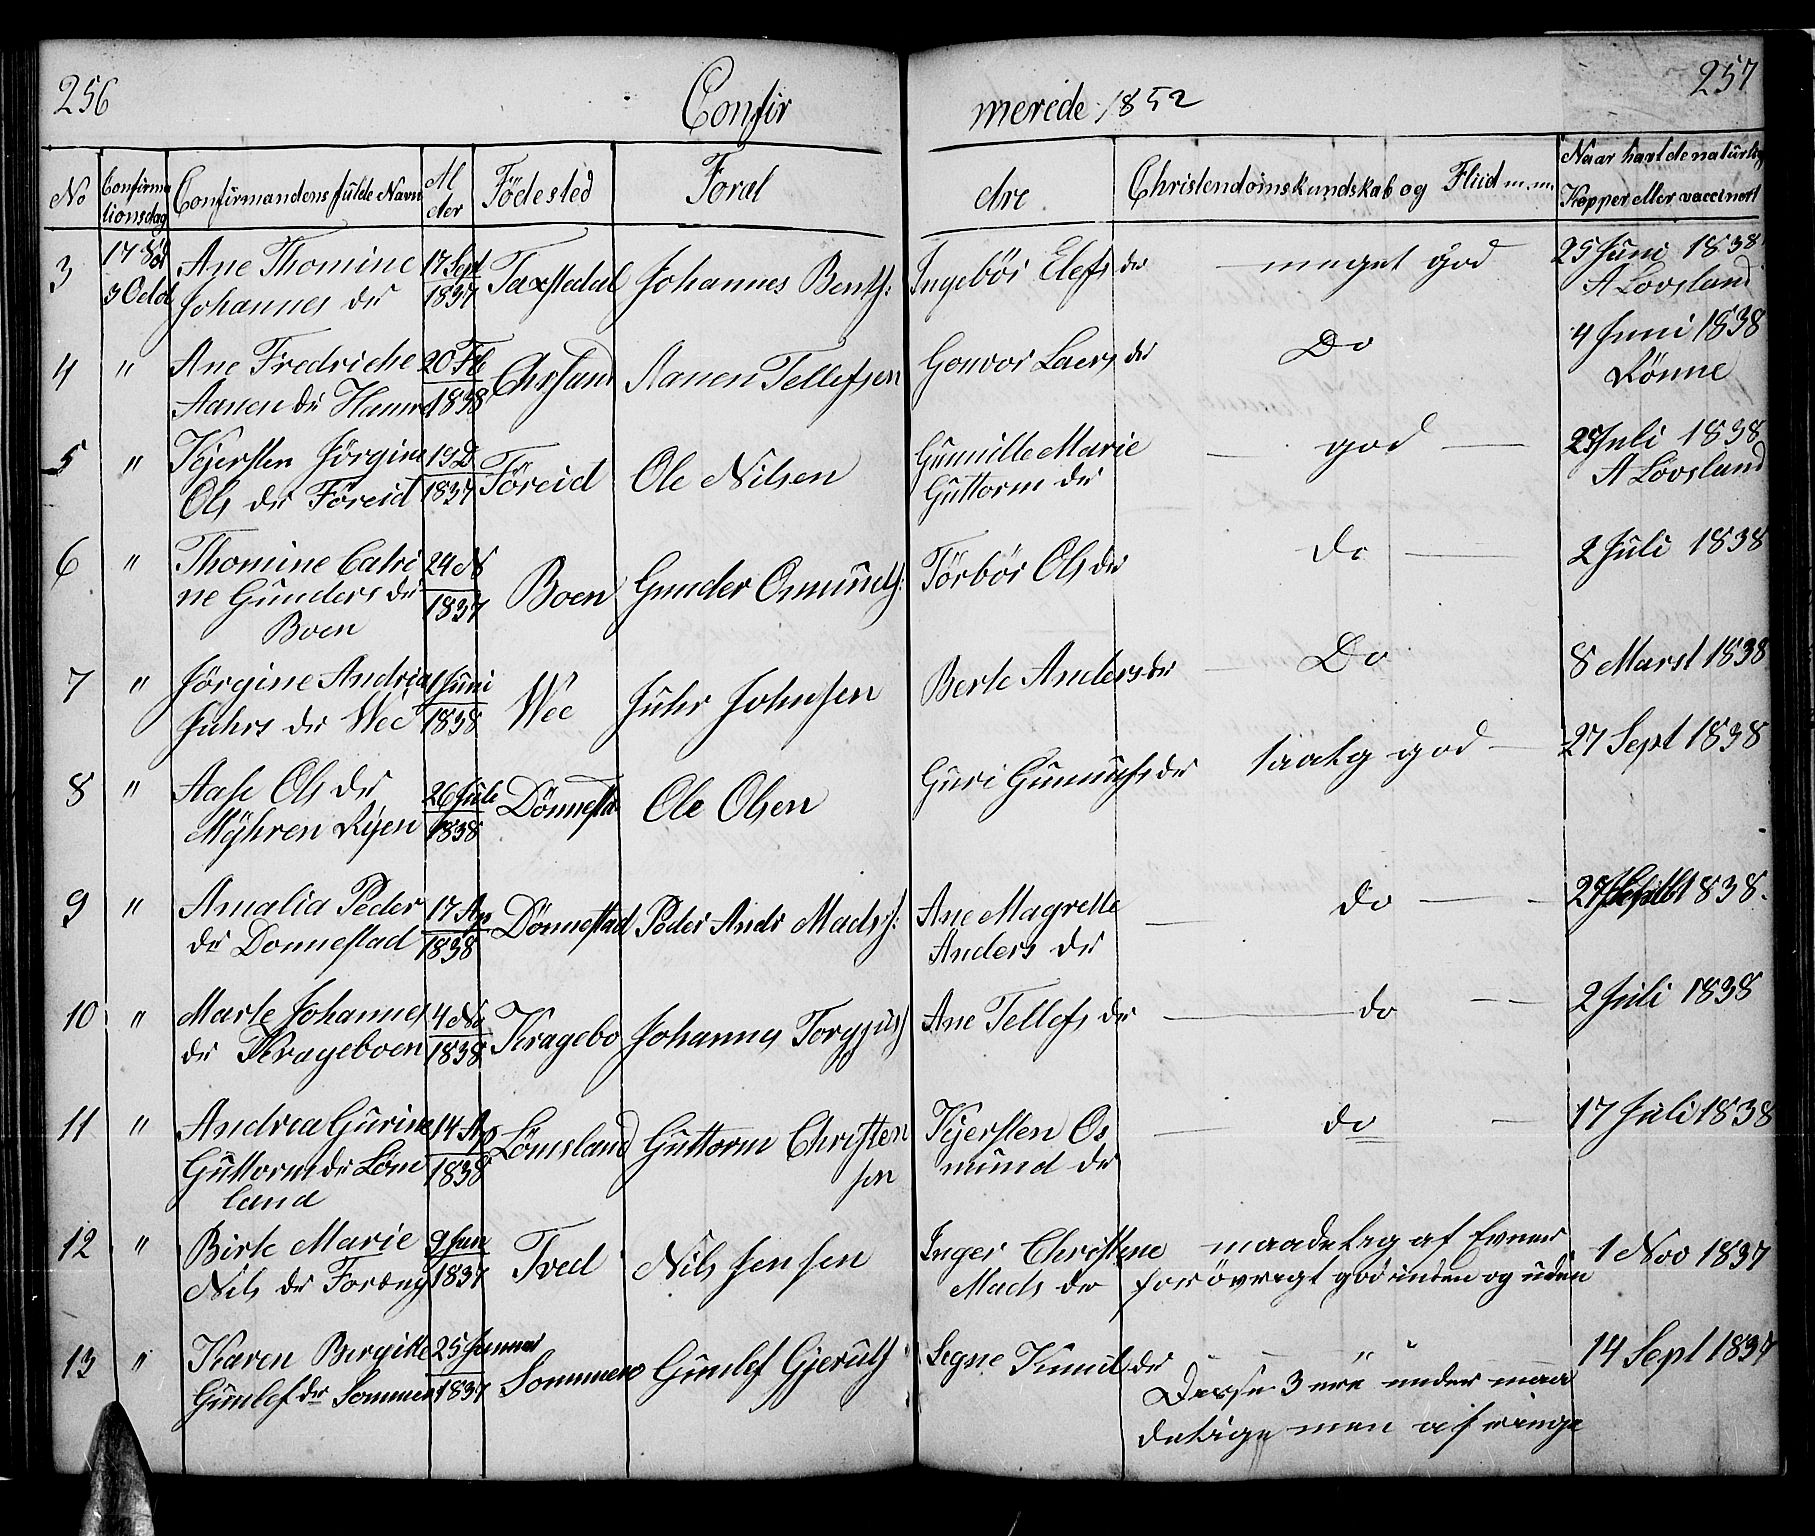 256
Confir
merede 1852
257
No
Confirma
tionsdag
Confirmandens fulde Navn
Al
der
Födested
Foræl
dre
Christendomskundskab og Fliid m.m.
Naar havt de naturlig
Kopper eller vaccinert
3
17 Söd
3 Octob
Ane Thomine
Johannes dr
17 Sept
1837
Taxstadal
Johannes Bents:
Ingebör Elefs dr
meget god
25 Juni 1838
A Lovsland
4
"
Ane Fredriche
Aanen dr Hamre
20 Fb
1838
Chrsand
Aanen Tellefsen
Gonvor Laers dr
Do
4 Juni 1838
Rönne
5
"
Kjersten Jörgine
Ols dr Föreid
19 D
1837
Föreid
Ole Nilsen
Gunnille Marie
Guttorm dr
god
Juli 1838
A Lovsland
6
"
Thomine Catri
ne Gunders dr
Boen
24 N
1837
Boen
Gunder Osmunds:
Törbör Ols dr
do
2 Juli 1838
7
"
Jörgine Andria
Juhrs dr Wee
1 Juni
1838
Wee
Juhr Johnsen
Berte Anders dr
Do
8 Marst 1838
8
"
Aase Ols dr
Mÿhren Rÿen
26 Jule
1838
Dönnesta
Ole Olsen
Guri Gunnufs dr
taalig god
27 Sept 1838
9
"
Amalia Peder
dr Donnestad
17 Ap
1838
Dönnestad
Peder Andr Mads:
Ane Magrette
Anders dr
do
1838.
10
"
Marte Johannes
dr Krageboen
4 No
1838
Kragebo
Johannes Torgjus
Ane Tellefs dr
do
2 Juli 1838
11
"
Andrea Gurine
Guttorm dr Löms
land
14 Ap
1838
Lömsland
Guttorm Christen
sen
Kjersten Os
mund dr
do
17 Juli 1838
12
"
Birte Marie
Nils dr Foræng
9 Jun
1837
Tved
Nils Jensen
Inger Christene
Mads dr
maadelig af Evner
forövrigt god inden og uden
1 Nov 1837
13
"
Karen Birgitte
Gunlef dr Sommero
25 Januar
1837
Sommero
Gunlef Gjeruls
Segne Knuds dr
"
14 Sept 1837
Disse 3 ere under maa
delige men af ringe